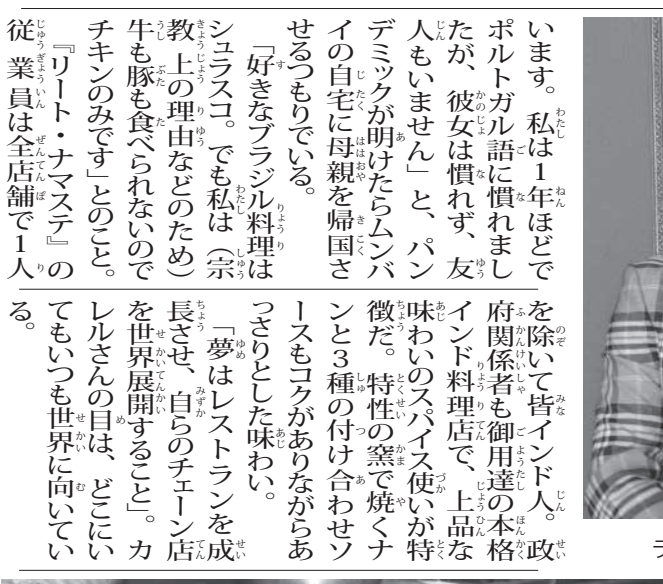 います。私は1年ほどで
ポルトガル語に慣れまし
たが、彼女は慣れず、友
人もいません」と、パン
デミックが明けたらムンバ
イの自宅に母親を帰国さ
せるつもりでいる。
「好きなブラジル料理は
シュラスコ。でも私は（宗
教上の理由などのため）
牛も豚も食べられないので
チキンのみです」とのこと。
『リート・ナマステ』の
従業員は全店舗で1人
を除いて皆インド人。政
府関係者も御用達の本格
インド料理店で、上品な
味わいのスパイス使いが特
徴だ。特性の窯で焼くナ
ンと3種の付け合わせソ
ースもコクがありながらあ
っさりとした味わい。
「夢はレストランを成
長させ、自らのチェーン店
を世界展開すること」。カ
レルさんの目は、どこにい
てもいつも世界に向いてい
る。